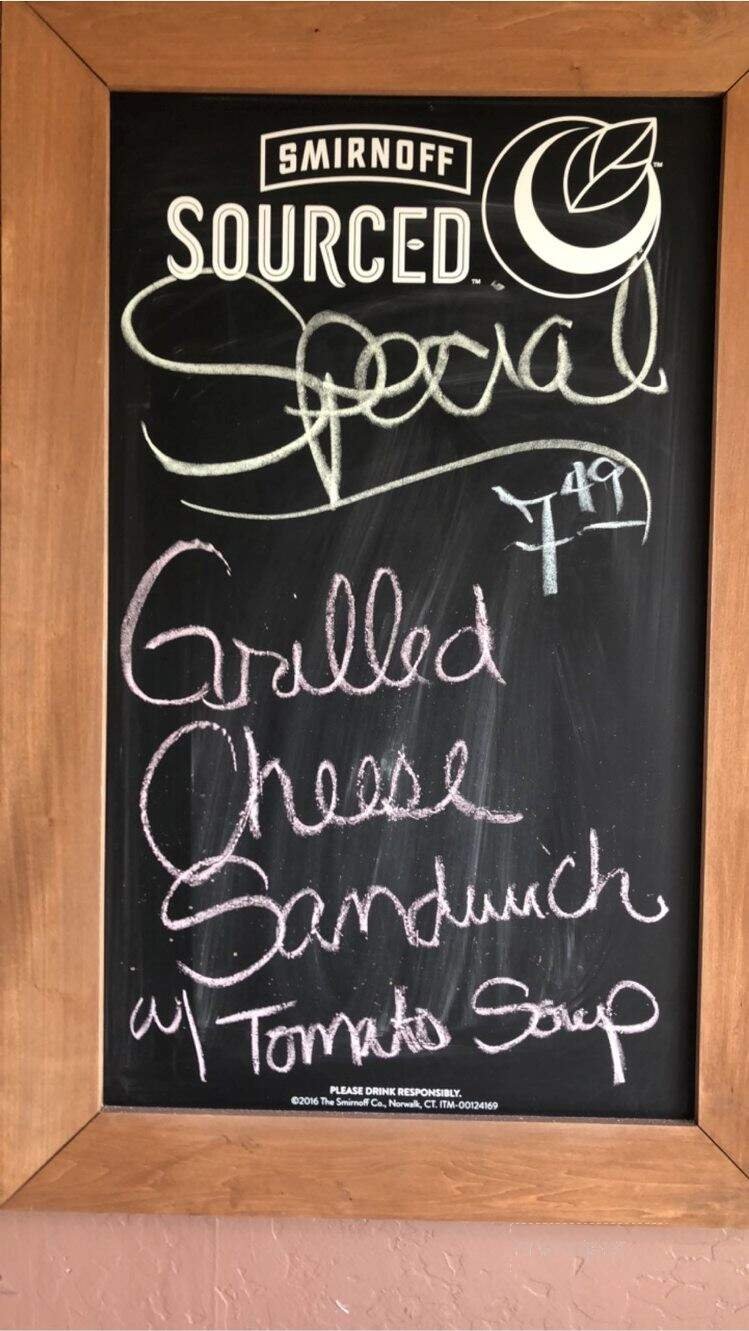 SMIRNOFF
SOURCED™
Special
7.49
Grilled
Cheese
Sandwich
w/ Tomato Soup
PLEASE DRINK RESPONSIBLY.
©2016 The Smirnoff Co., Norwalk, CT. ITM-00124169